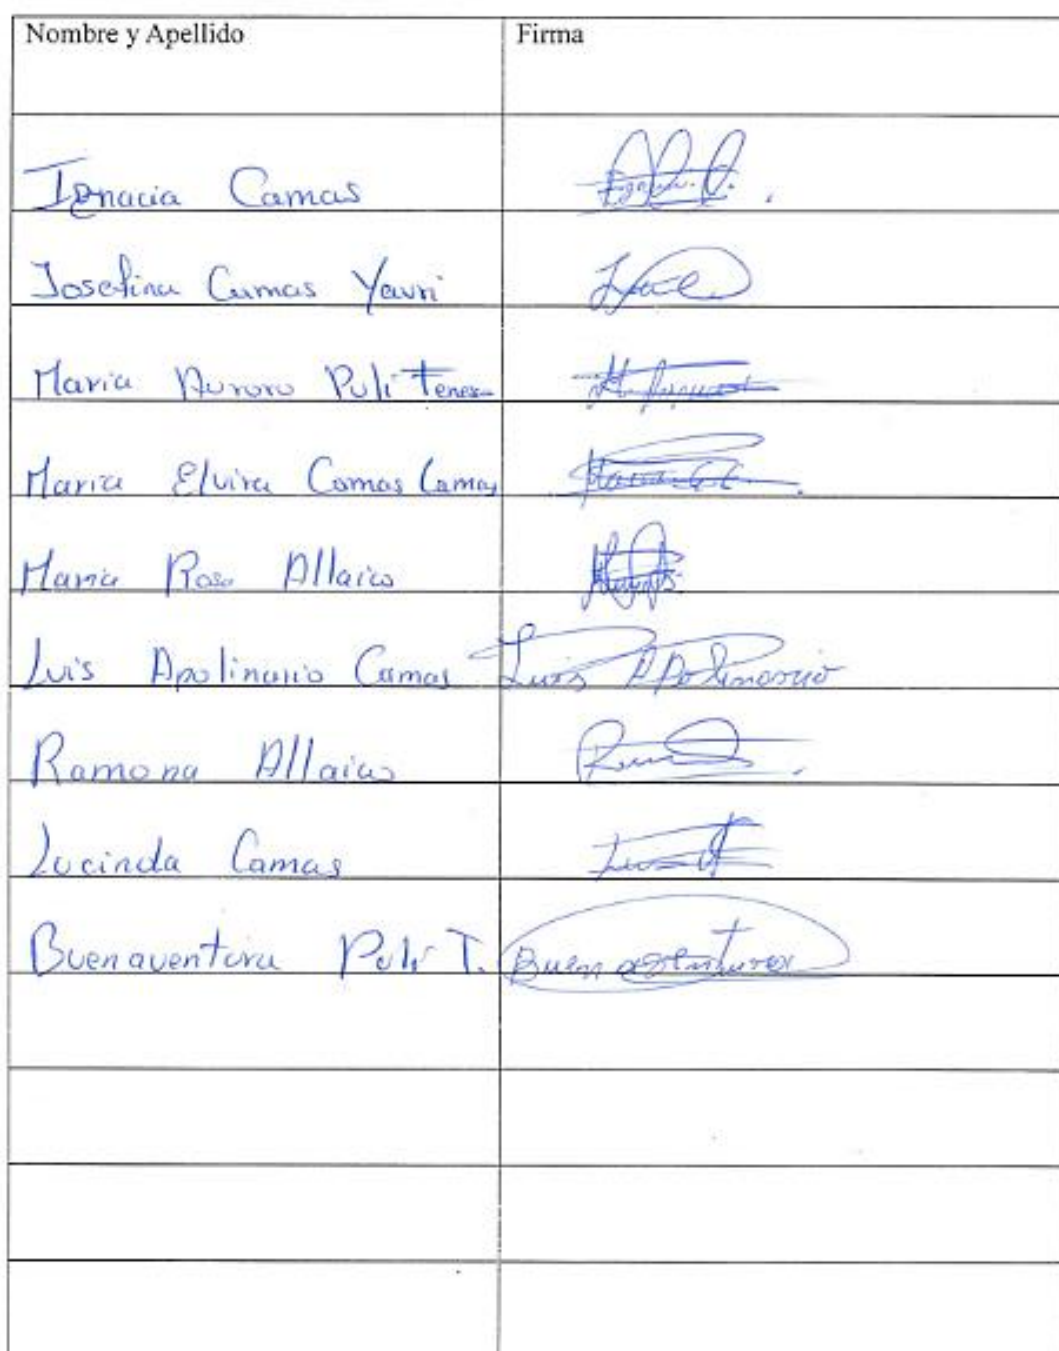 Nombre y Apellido Firma
Ignacia Camas
Josefina Camas Yauri
Maria Auroro Puli Tenesa
Maria Elvira Comas Camas
Maria Rosa Allaico
Luis Apolinario Camas Luis Apolinario
Ramona Allaico
Lucinda Camas
Buenaventura Puli T. Buenaventura